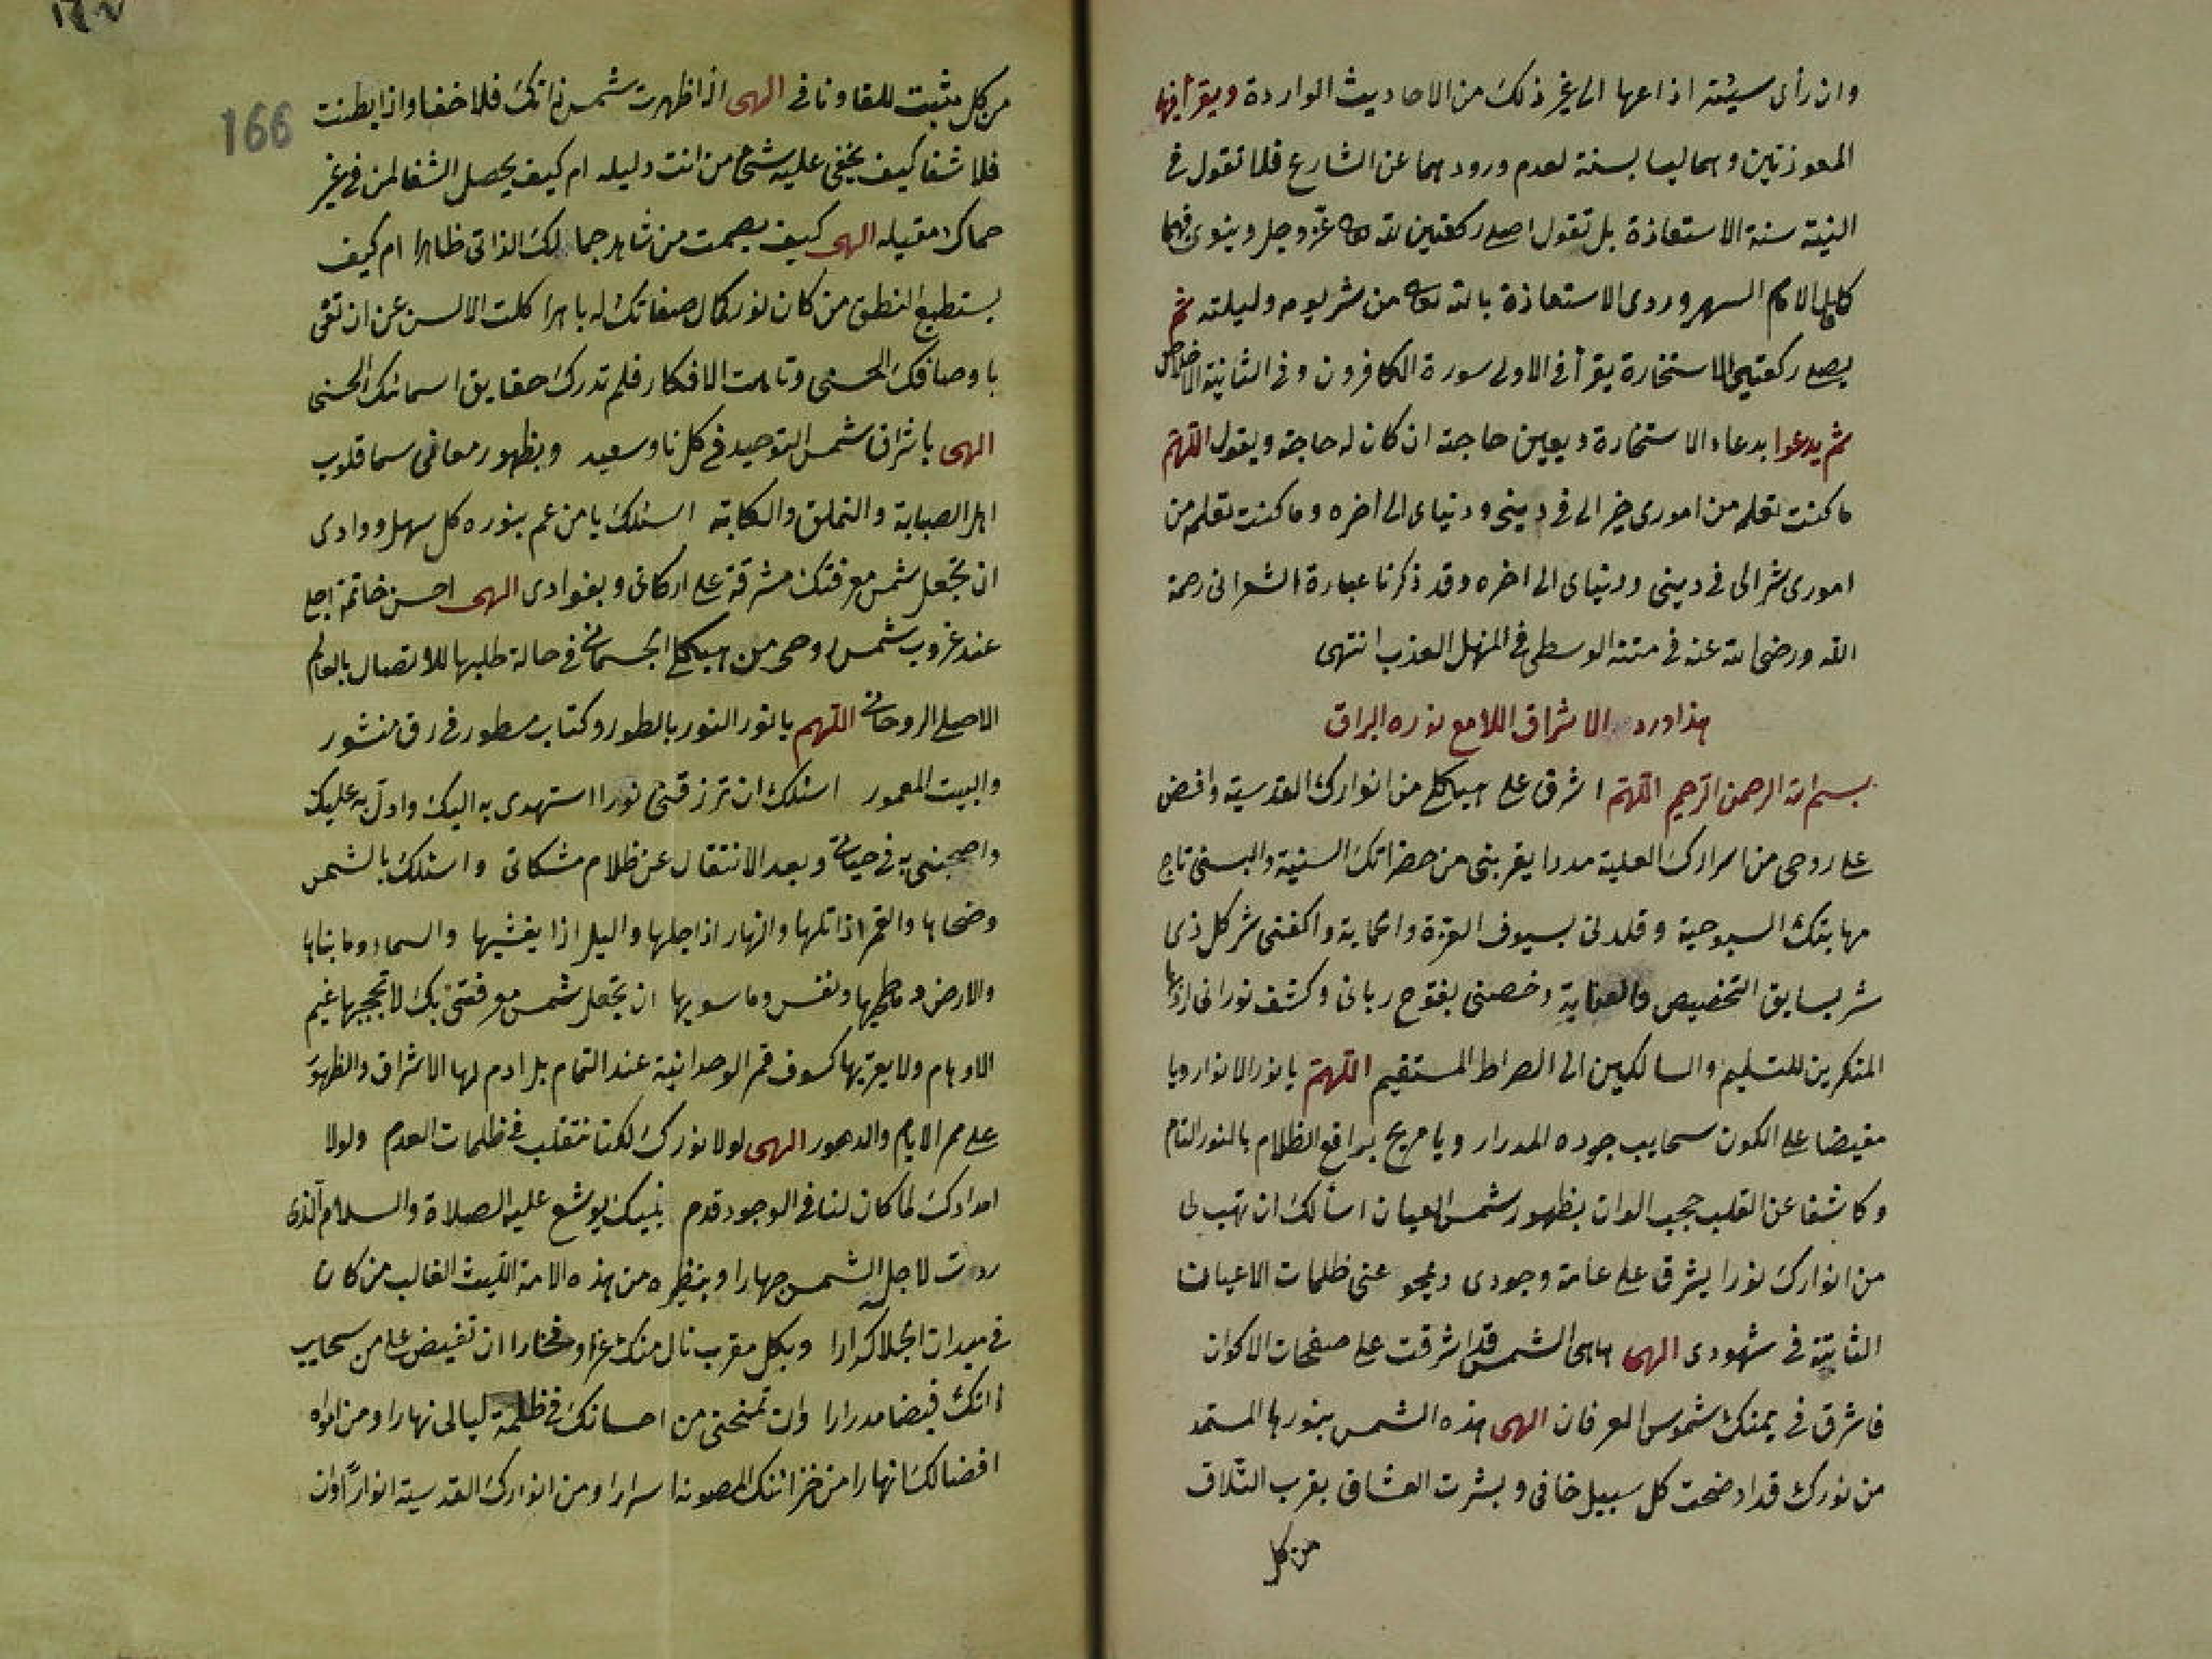 وان رأى سيئة اذاعها الى غير ذلك من الاحاديث الواردة ويقرأ فيها
المعوذتين وهما ليسا بسنة لعدم ورودهما عن الشارع فلا تقول في
النية سنة الاستعاذة بل تقول اصلي ركعتين لله تعالى عز وجل وينوي فيهما
كما قال الامام السهروردى الاستعاذة بالله تعالى من شر يومه وليلته ثم
يصلي ركعتي الاستخارة يقرأ في الاولى سورة الكافرون وفي الثانية الاخلاص
ثم يدعوا بدعاء الاستخارة ويعين حاجة ان كان له حاجة ويقول اللهم
ما كنت تعلم من امورى خير الى في دينى ودنياى الى اخره وما كنت تعلم من
امورى شر الى في دينى ودنياى الى اخره وقد ذكرنا عبارة الشعرانى رحمة
الله ورضى الله عنه في مننه الوسطى في المنهل العذب انتهى
هذا ورد الاشراق اللامع نوره البراق
بسم الله الرحمن الرحيم اللهم اشرق على هيكلي من انوارك القدسية وافض
على روحى من اسرارك العلية مددا يقربنى من حضراتك السنية والبسنى تاج
مهابتك السبوحية وقلدنى بسيوف العزة والحماية واكفنى شر كل ذى
شر بسابق التخصيص والعناية وخصنى بفتوح ربانى وكشف نورانى
المنكرين للتسليم والسالكين الى الصراط المستقيم اللهم يا نور الانوار ويا
مفيضا على الكون سحايب جوده المدرار ويا مريح براقع الظلام بالنور التام
وكاشفا عن القلب حجب الران بظهور شمس العيان اسألك ان تهب لى
من انوارك نورا يشرق على عامة وجودى ويمحو عنى ظلمات الاعيان
الثابتة في شهودى الهى هاهى الشمس قد اشرقت على صفحات الاكوان
فاشرق في يمنك شموس العرفان الهى هذه الشمس بنورها المستمد
من نورك قد اوضحت كل سبيل خافى وبشرت العشاق بقرب التلاق
من كل
166
من كل مثبت للقاونا في الهى اذا ظهرت شمس ذاتك فلا خفا واذا بطنت
فلا شفا كيف يخفى عليه شئ من انت دليله ام كيف يحصل الشفا لمن في غير
حماك مقيله الهى كيف يصمت من شاهد جمالك الذاتى ظاهرا ام كيف
يستطيع النطق من كان نور كمال صفاتك له باهرا كلت الالسن عن ان تفى
باوصافك الحسنى وتاهت الافكار فلم تدرك حقايق اسمائك الحسنى
الهى باشراق شمس التوحيد في كل ناد وسعيد وبظهور معانى سما قلوب
اهل الصبابة والتملق والكابه اسئلك يا من عم بنوره كل سهل ووادى
ان تجعل شمس معرفتك مشرقة على اركانى وبفوادى الهى احسن خاتمة اجلى
عند غروب شمس روحى من هيكلي الجسمانى في حالة طلبها للاتصال بالعالم
الاصلي الروحانى اللهم يا نور النور بالطور وكتاب مسطور في رق منشور
والبيت المعمور اسئلك ان ترزقنى نورا استهدى به اليك وادل به عليك
واصحبنى به في حياتى وبعد الانتقال عن ظلام مشكاتى واسئلك بالشمس
وضحاها والقمر اذا تلها والنهار اذا جلها واليل اذا يغشيها والسماء وما بناها
والارض وما طحيها ونفس وما سويها ان تجعل شمس معرفتى بك لا تحجبها غيم
الاوهام ولا يعتريها كسوف قمر الوحدانية عند التمام بل ادم لها الاشراق والظهور
على مر الايام والدهور الهى لولا نورك لكنا نتقلب في ظلمات العدم ولولا
امدادك لما كان لنا في الوجود قدم بنبيك يوشع عليه الصلاة والسلام الذى
ردت لاجله الشمس جهارا وبنظيره من هذه الامة الليث الغالب من كان
في ميدان الجلا كرارا وبكل مقرب نال منك عزا وفخارا ان تفيض على من سحايب
ذاتك فيضا مدرارا وان تمنحنى من احسانك في ظلمة ليالى نهارا ومن امواه
افضالك انهارا من خزائنك المصونه اسرارا ومن انوارك القدسية انوارا وان